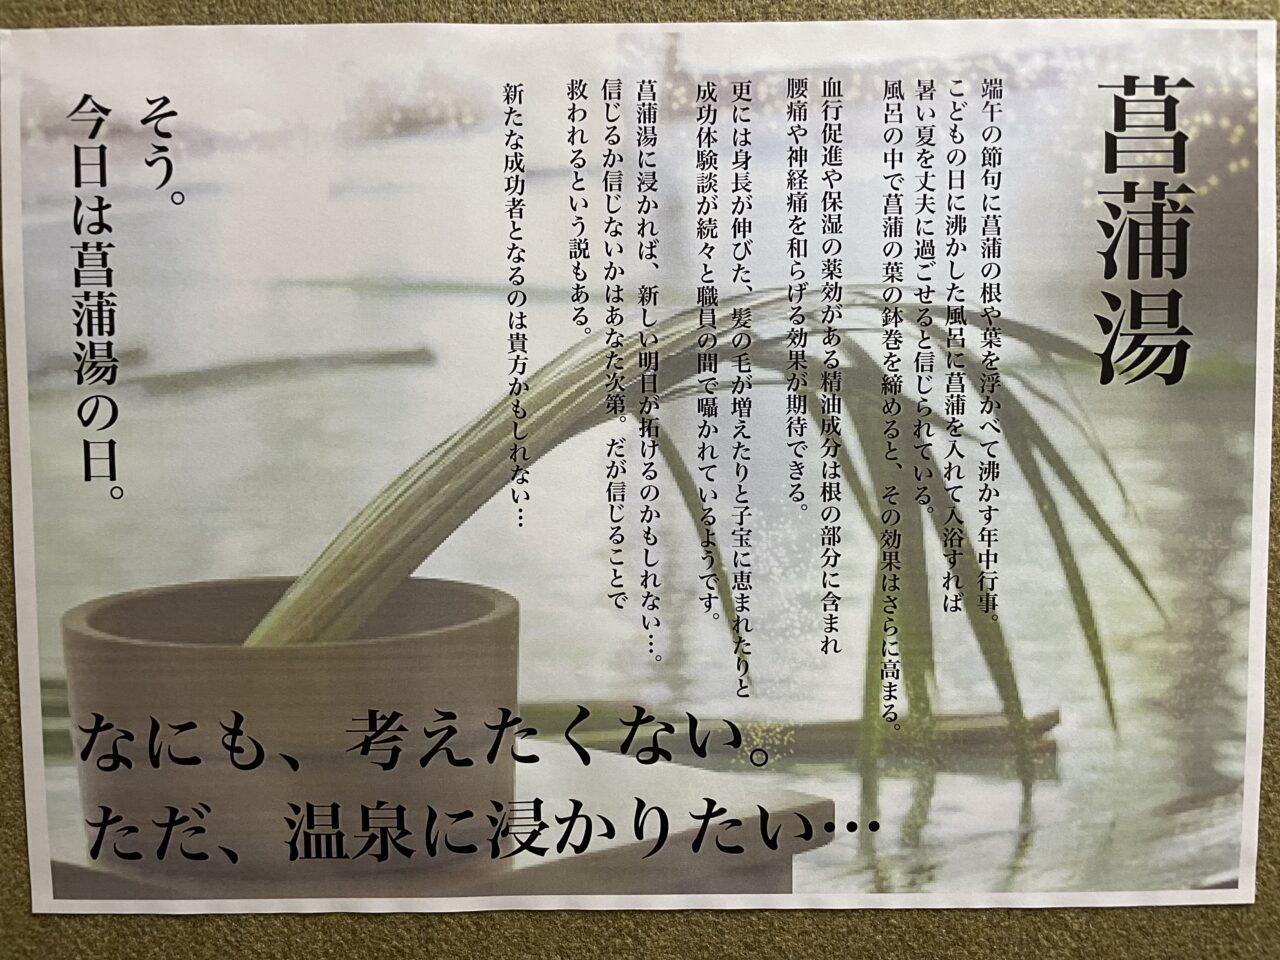 菖蒲湯
端午の節句に菖蒲の根や葉を浮かべて沸かす年中行事。
こどもの日に沸かした風呂に菖蒲を入れて入浴すれば
暑い夏を丈夫に過ごせると信じられている。
風呂の中で菖蒲の葉の鉢巻を締めると、その効果はさらに高まる。
血行促進や保湿の薬効がある精油成分は根の部分に含まれ
腰痛や神経痛を和らげる効果が期待できる。
更には身長が伸びた、髪の毛が増えたりと子宝に恵まれたりと
成功体験談が続々と職員の間で囁かれているようです。
菖蒲湯に浸かれば、新しい明日が拓けるのかもしれない…。
信じるか信じないかはあなた次第。だが信じることで
救われるという説もある。
新たな成功者となるのは貴方かもしれない…
そう。
今日は菖蒲湯の日。
なにも、考えたくない。
ただ、温泉に浸かりたい…